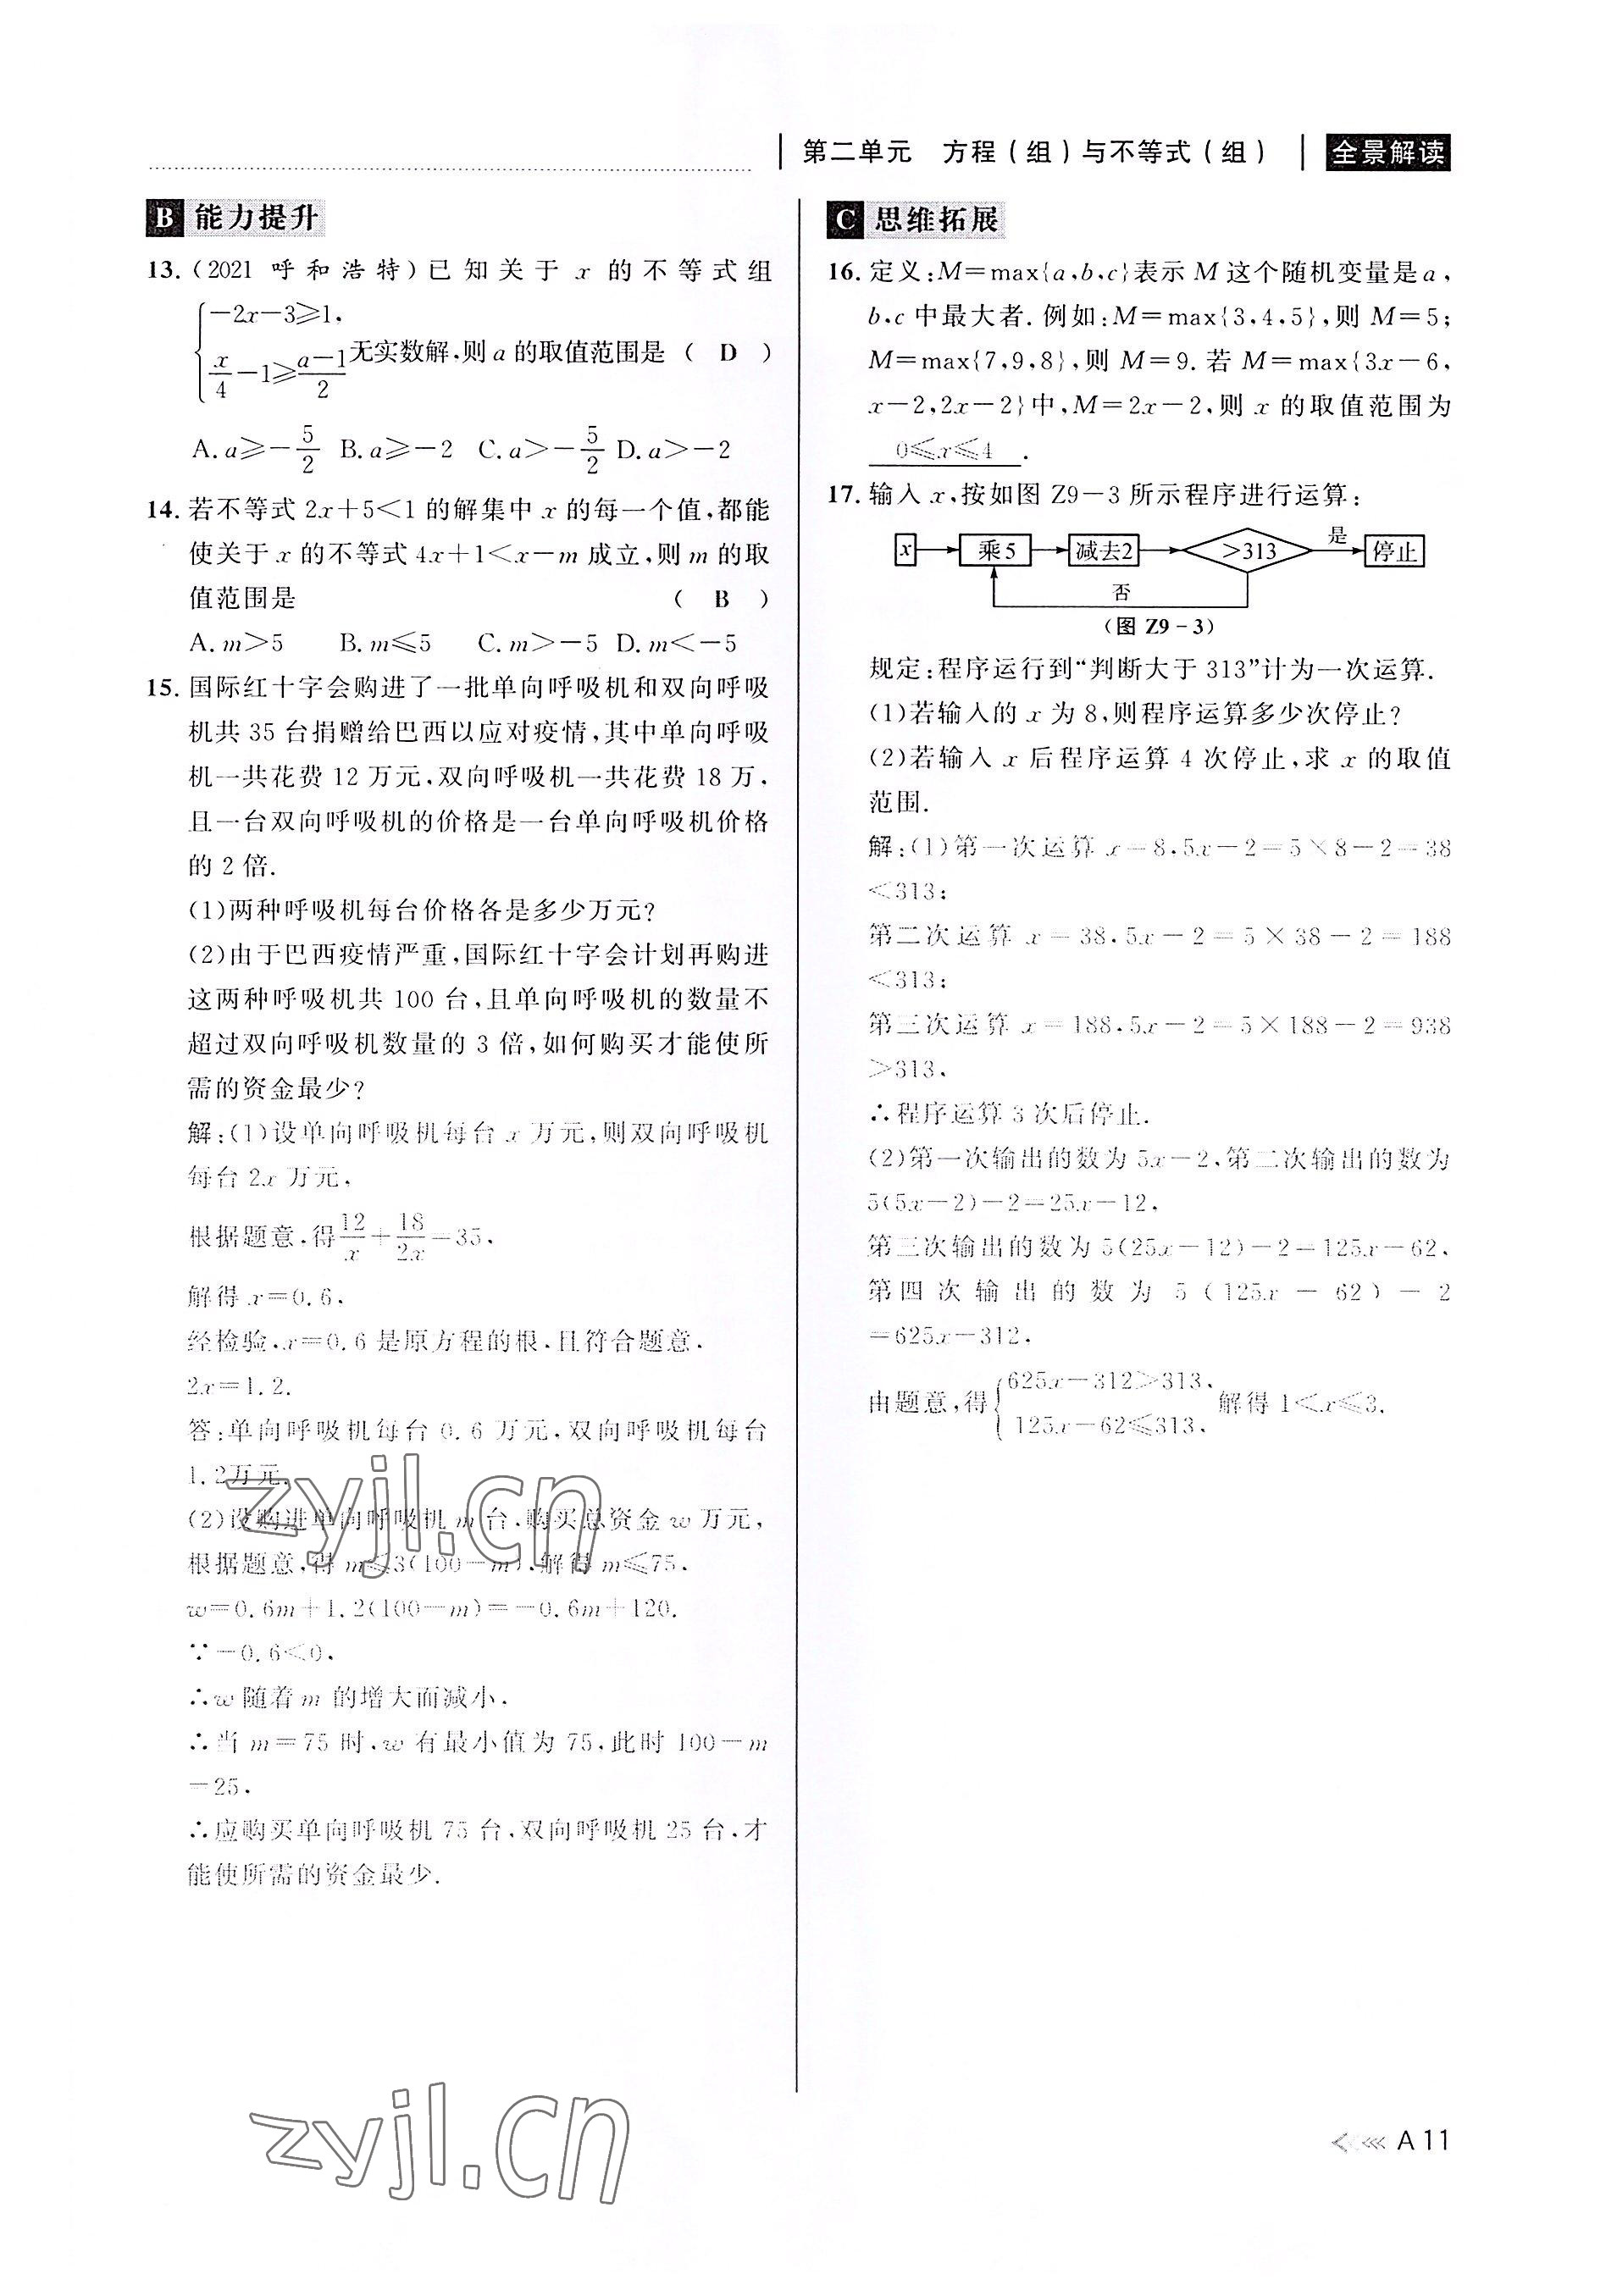 第二单元　方程（组）与不等式（组）　全景解读
B 能力提升
13.(2021 呼和浩特)已知关于 x 的不等式组
{−2x−3⩾1, x/4−1⩾(a−1)/2 无实数解,则 a 的取值范围是 ( D )
A. a⩾−5/2 B. a⩾−2 C. a>−5/2 D. a>−2
14. 若不等式 2x+5<1 的解集中 x 的每一个值,都能
使关于 x 的不等式 4x+1<x−m 成立,则 m 的取
值范围是 ( B )
A. m>5 B. m⩽5 C. m>−5 D. m<−5
15. 国际红十字会购进了一批单向呼吸机和双向呼吸
机共 35 台捐赠给巴西以应对疫情,其中单向呼吸
机一共花费 12 万元,双向呼吸机一共花费 18 万,
且一台双向呼吸机的价格是一台单向呼吸机价格
的 2 倍.
(1)两种呼吸机每台价格各是多少万元?
(2)由于巴西疫情严重,国际红十字会计划再购进
这两种呼吸机共 100 台,且单向呼吸机的数量不
超过双向呼吸机数量的 3 倍,如何购买才能使所
需的资金最少?
解:(1)设单向呼吸机每台 x 万元,则双向呼吸机
每台 2x 万元,
根据题意,得 12/x+18/2x=35,
解得 x=0.6,
经检验,x=0.6 是原方程的根,且符合题意.
2x=1.2.
答:单向呼吸机每台 0.6 万元,双向呼吸机每台
1.2万元.
(2)设购进单向呼吸机 m 台,购买总资金 w 万元,
根据题意,得 m⩽3(100−m),解得 m⩽75.
w=0.6m+1.2(100−m)=−0.6m+120.
∵−0.6<0,
∴w 随着 m 的增大而减小.
∴当 m=75 时,w 有最小值为 75,此时 100−m
=25.
∴应购买单向呼吸机 75 台,双向呼吸机 25 台,才
能使所需的资金最少.
C 思维拓展
16. 定义:M=max{a,b,c}表示 M 这个随机变量是 a,
b,c 中最大者. 例如:M=max{3,4,5},则 M=5;
M=max{7,9,8},则 M=9. 若 M=max{3x−6,
x−2,2x−2}中,M=2x−2,则 x 的取值范围为
0⩽x⩽4.
17. 输入 x,按如图 Z9−3 所示程序进行运算:
x 乘5 减去2 >313 是 停止
否
(图 Z9−3)
规定:程序运行到“判断大于 313”计为一次运算.
(1)若输入的 x 为 8,则程序运算多少次停止?
(2)若输入 x 后程序运算 4 次停止,求 x 的取值
范围.
解:(1)第一次运算 x=8,5x−2=5×8−2=38
<313;
第二次运算 x=38,5x−2=5×38−2=188
<313;
第三次运算 x=188,5x−2=5×188−2=938
>313,
∴程序运算 3 次后停止.
(2)第一次输出的数为 5x−2,第二次输出的数为
5(5x−2)−2=25x−12,
第三次输出的数为 5(25x−12)−2=125x−62,
第四次输出的数为 5(125x−62)−2
=625x−312,
由题意,得{625x−312>313, 125x−62⩽313, 解得 1<x⩽3.
zyjl.cn
zyjl.cn
A 11